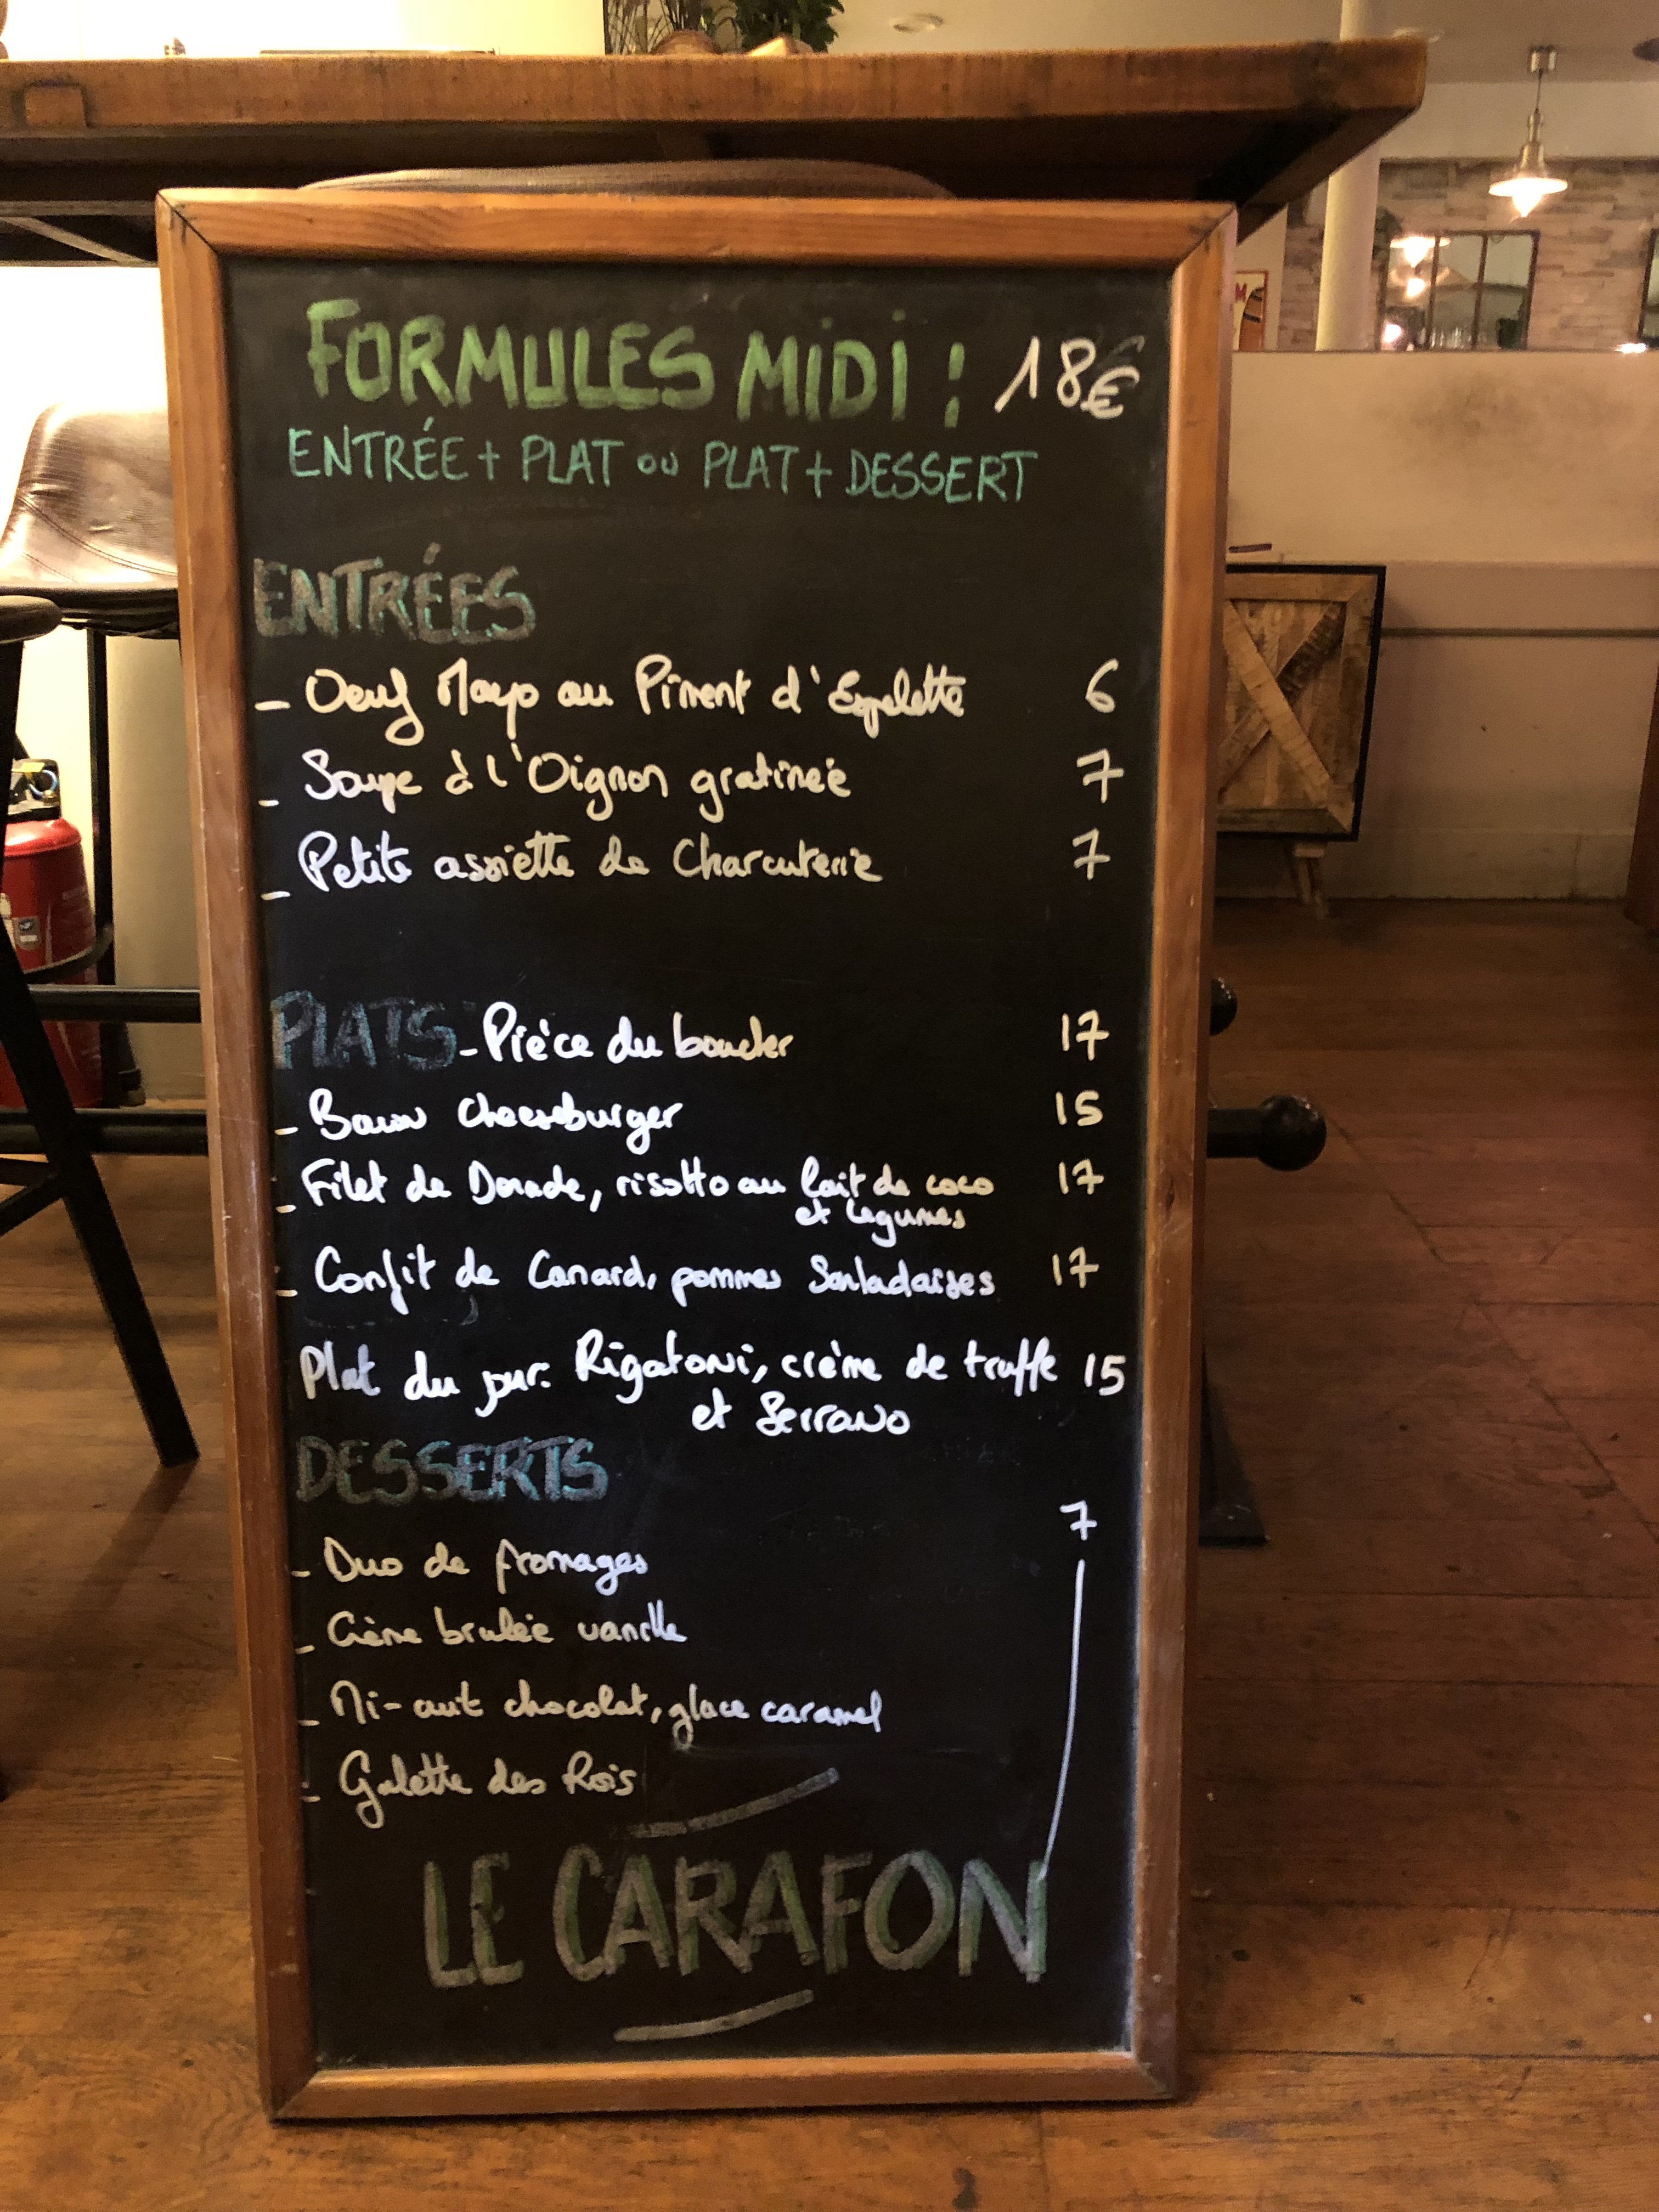 FORMULES MIDI : 18€
ENTRÉE + PLAT ou PLAT + DESSERT
ENTRÉES
- Oeuf Mayo au Piment d'Espelette 6
- Soupe à l'Oignon gratinée 7
- Petite assiette de Charcuterie 7
PLATS - Pièce du boucher 17
- Bacon cheeseburger 15
- Filet de Dorade, risotto au lait de coco 17
et légumes
- Confit de Canard, pommes Sarladaises 17
Plat du jour: Rigatoni, crème de truffe 15
et Serrano
DESSERTS
7
- Duo de fromages
- Crème brulée vanille
- Mi-cuit chocolat, glace caramel
- Galette des Rois
LE CARAFON